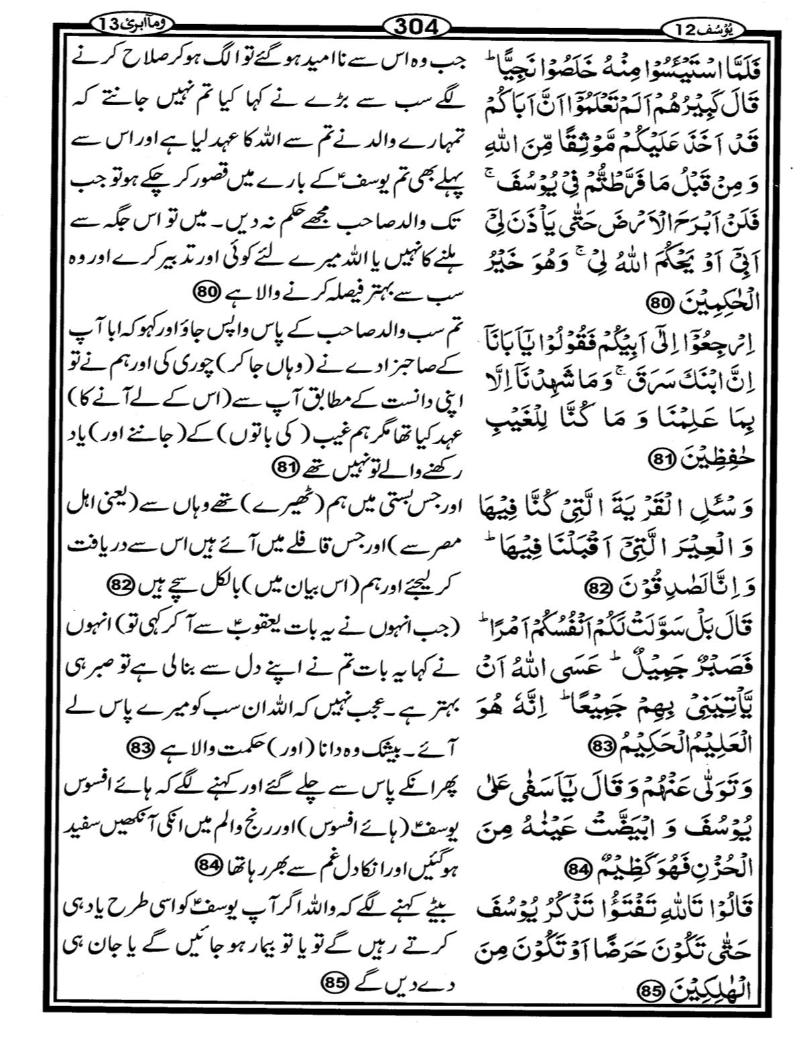 یُوْسُف 12
304
وماۤابرئ 13
فَلَمَّا اسْتَیْـَٔسُوْا مِنْهُ خَلَصُوْا نَجِیًّا ؕ
قَالَ كَبِیْرُهُمْ اَلَمْ تَعْلَمُوْۤا اَنَّ اَبَاكُمْ
قَدْ اَخَذَ عَلَیْكُمْ مَّوْثِقًا مِّنَ اللّٰهِ
وَ مِنْ قَبْلُ مَا فَرَّطْتُّمْ فِیْ یُوْسُفَ ۚ
فَلَنْ اَبْرَحَ الْاَرْضَ حَتّٰی یَاْذَنَ لِیْۤ
اَبِیْۤ اَوْ یَحْكُمَ اللّٰهُ لِیْ ۚ وَهُوَ خَیْرُ
الْحٰكِمِیْنَ 80
اِرْجِعُوْۤا اِلٰۤی اَبِیْكُمْ فَقُوْلُوْا یٰۤاَبَانَاۤ
اِنَّ ابْنَكَ سَرَقَ ۚ وَمَا شَهِدْنَاۤ اِلَّا
بِمَا عَلِمْنَا وَ مَا كُنَّا لِلْغَیْبِ
حٰفِظِیْنَ 81
وَسْـَٔلِ الْقَرْیَةَ الَّتِیْ كُنَّا فِیْهَا
وَ الْعِیْرَ الَّتِیْۤ اَقْبَلْنَا فِیْهَا ؕ
وَ اِنَّا لَصٰدِقُوْنَ 82
قَالَ بَلْ سَوَّلَتْ لَكُمْ اَنْفُسُكُمْ اَمْرًا ؕ
فَصَبْرٌ جَمِیْلٌ ؕ عَسَی اللّٰهُ اَنْ
یَّاْتِیَنِیْ بِهِمْ جَمِیْعًا ؕ اِنَّهٗ هُوَ
الْعَلِیْمُ الْحَكِیْمُ 83
وَتَوَلّٰی عَنْهُمْ وَقَالَ یٰۤاَسَفٰی عَلٰی
یُوْسُفَ وَ ابْیَضَّتْ عَیْنٰهُ مِنَ
الْحُزْنِ فَهُوَ كَظِیْمٌ 84
قَالُوْا تَاللّٰهِ تَفْتَؤُا تَذْكُرُ یُوْسُفَ
حَتّٰی تَكُوْنَ حَرَضًا اَوْ تَكُوْنَ مِنَ
الْهٰلِكِیْنَ 85
جب وہ اس سے ناامید ہوگئے تو الگ ہو کر صلاح کرنے
لگے سب سے بڑے نے کہا کیا تم نہیں جانتے کہ
تمہارے والد نے تم سے اللہ کا عہد لیا ہے اور اس سے
پہلے بھی تم یوسفؑ کے بارے میں قصور کر چکے ہو تو جب
تک والد صاحب مجھے حکم نہ دیں۔ میں تو اس جگہ سے
ہلنے کا نہیں یا اللہ میرے لئے کوئی اور تدبیر کرے اور وہ
سب سے بہتر فیصلہ کرنے والا ہے 80
تم سب والد صاحب کے پاس واپس جاؤ اور کہو کہ ابا آپ
کے صاحبزادے نے (وہاں جا کر) چوری کی اور ہم نے تو
اپنی دانست کے مطابق آپ سے (اس کے لے آنے کا)
عہد کیا تھا مگر ہم غیب (کی باتوں) کے (جاننے اور) یاد
رکھنے والے تو نہیں تھے 81
اور جس بستی میں ہم (ٹھیرے) تھے وہاں سے (یعنی اہل
مصر سے) اور جس قافلے میں آئے ہیں اس سے دریافت
کر لیجئے اور ہم (اس بیان میں) بالکل سچے ہیں 82
(جب انہوں نے یہ بات یعقوبؑ سے آ کر کہی تو) انہوں
نے کہا یہ بات تم نے اپنے دل سے بنا لی ہے تو صبر ہی
بہتر ہے۔ عجب نہیں کہ اللہ ان سب کو میرے پاس لے
آئے۔ بیشک وہ دانا (اور) حکمت والا ہے 83
پھر انکے پاس سے چلے گئے اور کہنے لگے کہ ہائے افسوس
یوسفؑ (ہائے افسوس) اور رنج و الم میں انکی آنکھیں سفید
ہوگئیں اور انکا دل غم سے بھر رہا تھا 84
بیٹے کہنے لگے کہ واللہ اگر آپ یوسفؑ کو اسی طرح یاد ہی
کرتے رہیں گے تو یا تو بیمار ہو جائیں گے یا جان ہی
دے دیں گے 85